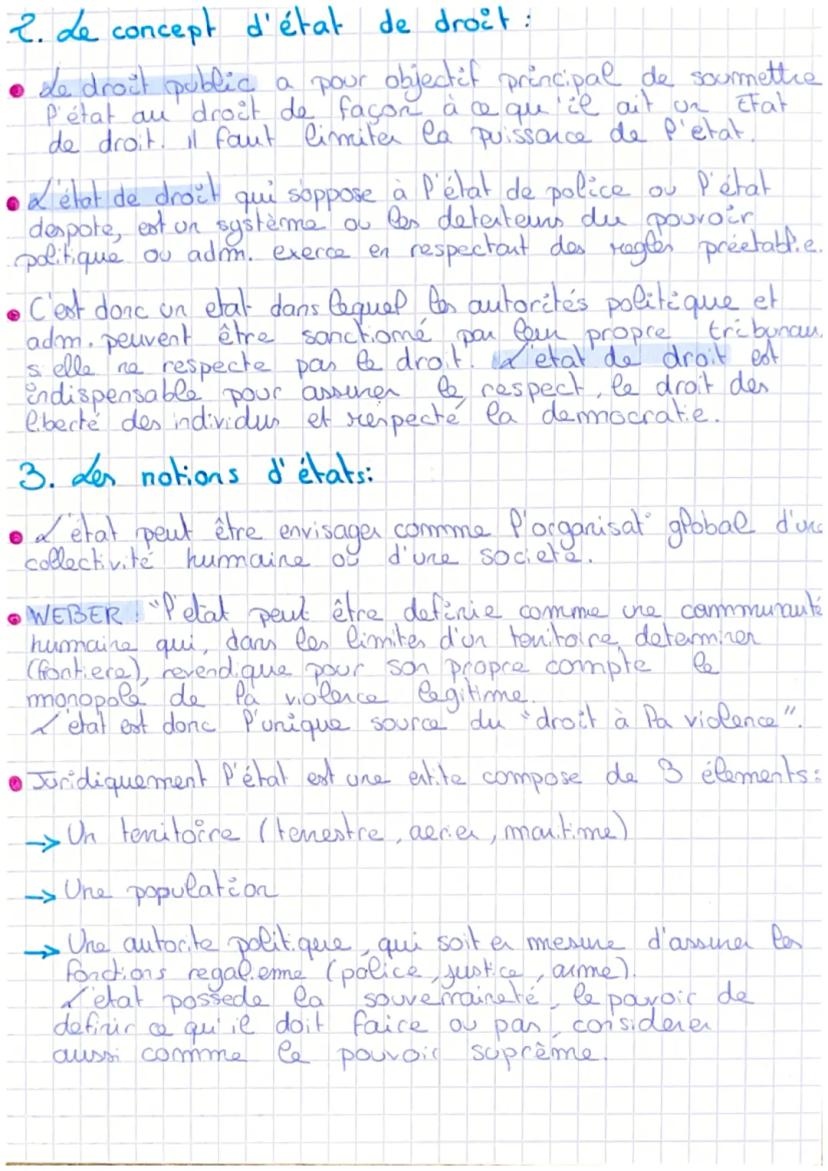 2. Le concept d'état de droit :
• Le droit public a pour objectif principal de soumettre
l'état au droit de façon à ce qu'il ait un Etat
de droit. il faut limiter la puissance de l'etat.
• L'état de droit qui s'oppose à l'état de police ou l'état
despote, est un système ou les detenteurs du pouvoir
politique ou adm. exerce en respectant des regles préetablie.
• C'est donc un etat dans lequel les autorités politique et
adm. peuvent être sanctionné par leur propre tribunau
s elle ne respecte pas le droit. L'etat de droit est
indispensable pour assurer le respect, le droit des
liberté des individus et respecté la democratie.
3. Les notions d'états:
• L'état peut être envisager comme l'organisat° global d'une
collectivité humaine ou d'une societé.
• WEBER : "l'etat peut être definie comme une communauté
humaine qui, dans les limites d'un territoire determiner
(frontiere), revendique pour son propre compte le
monopole de la violence legitime.
L'état est donc l'unique source du "droit à la violence".
• Juridiquement l'état est une entite compose de 3 élements:
→ Un territoire (terrestre, aerien, maritime)
→ Une population
→ Une autorite politique, qui soit en mesure d'assurer les
fonctions regalienne (police, justice, arme).
L'etat possede la souverraineté, le pouvoir de
definir ce qu'il doit faire ou pas, considerer
aussi comme le pouvoir suprême.